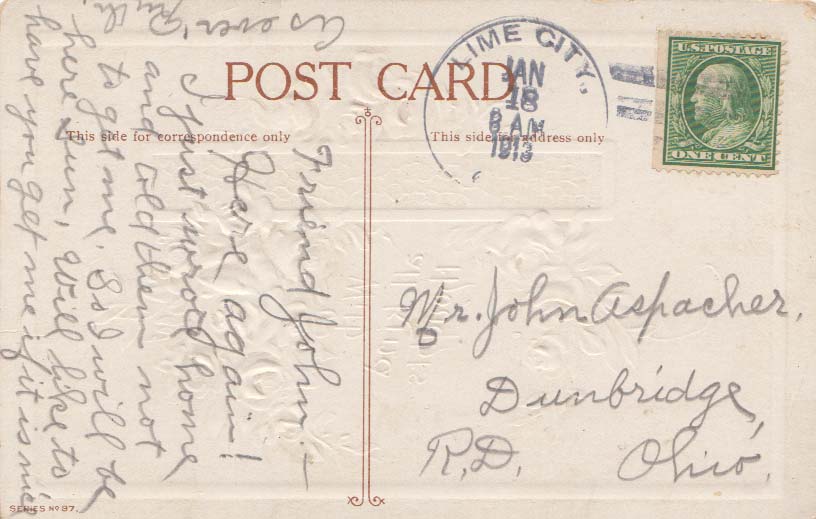 POST CARD
This side for correspondence only
This side for address only
LIME CITY,
JAN
18
8 AM
1913
U.S. POSTAGE
ONE CENT
Friend John:—
Here again!
I just wrote home
and told them not
to get me. So I will be
here Sun, Will like to
have you get me if it is nice
As ever Ruth.
Mr. John Aspacher,
Dunbridge,
R.D. Ohio.
SERIES No 97.